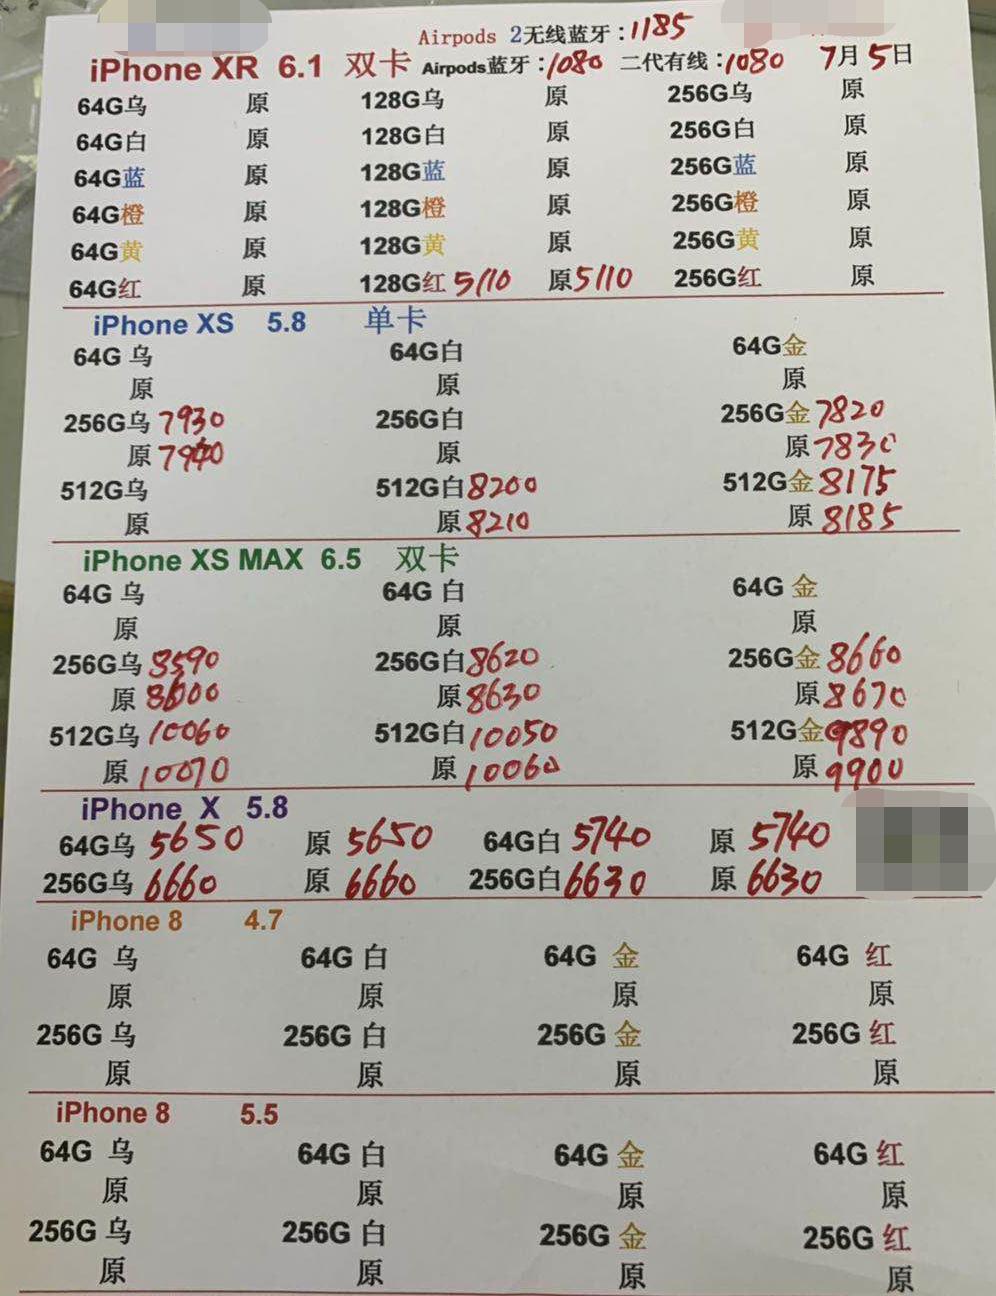 Airpods 2无线蓝牙:1185
iPhone XR 6.1 双卡 Airpods蓝牙:1080 二代有线:1080 7月5日
64G乌 原 128G乌 原 256G乌 原
64G白 原 128G白 原 256G白 原
64G蓝 原 128G蓝 原 256G蓝 原
64G橙 原 128G橙 原 256G橙 原
64G黄 原 128G黄 原 256G黄 原
64G红 原 128G红 5110 原5110 256G红 原
iPhone XS 5.8 单卡
64G 乌 64G白 64G金
原 原 原
256G乌 7930 256G白 256G金 7820
原 7940 原 原 7830
512G乌 512G白 8200 512G金 8175
原 原 8210 原 8185
iPhone XS MAX 6.5 双卡
64G 乌 64G 白 64G 金
原 原 原
256G乌 8590 256G白 8620 256G金 8660
原 8600 原 8630 原 8670
512G乌 10060 512G白 10050 512G金 9890
原 10070 原 10060 原 9900
iPhone X 5.8
64G乌 5650 原 5650 64G白 5740 原 5740
256G乌 6660 原 6660 256G白 6630 原 6630
iPhone 8 4.7
64G 乌 64G 白 64G 金 64G 红
原 原 原 原
256G 乌 256G 白 256G 金 256G 红
原 原 原 原
iPhone 8 5.5
64G 乌 64G 白 64G 金 64G 红
原 原 原 原
256G 乌 256G 白 256G 金 256G 红
原 原 原 原